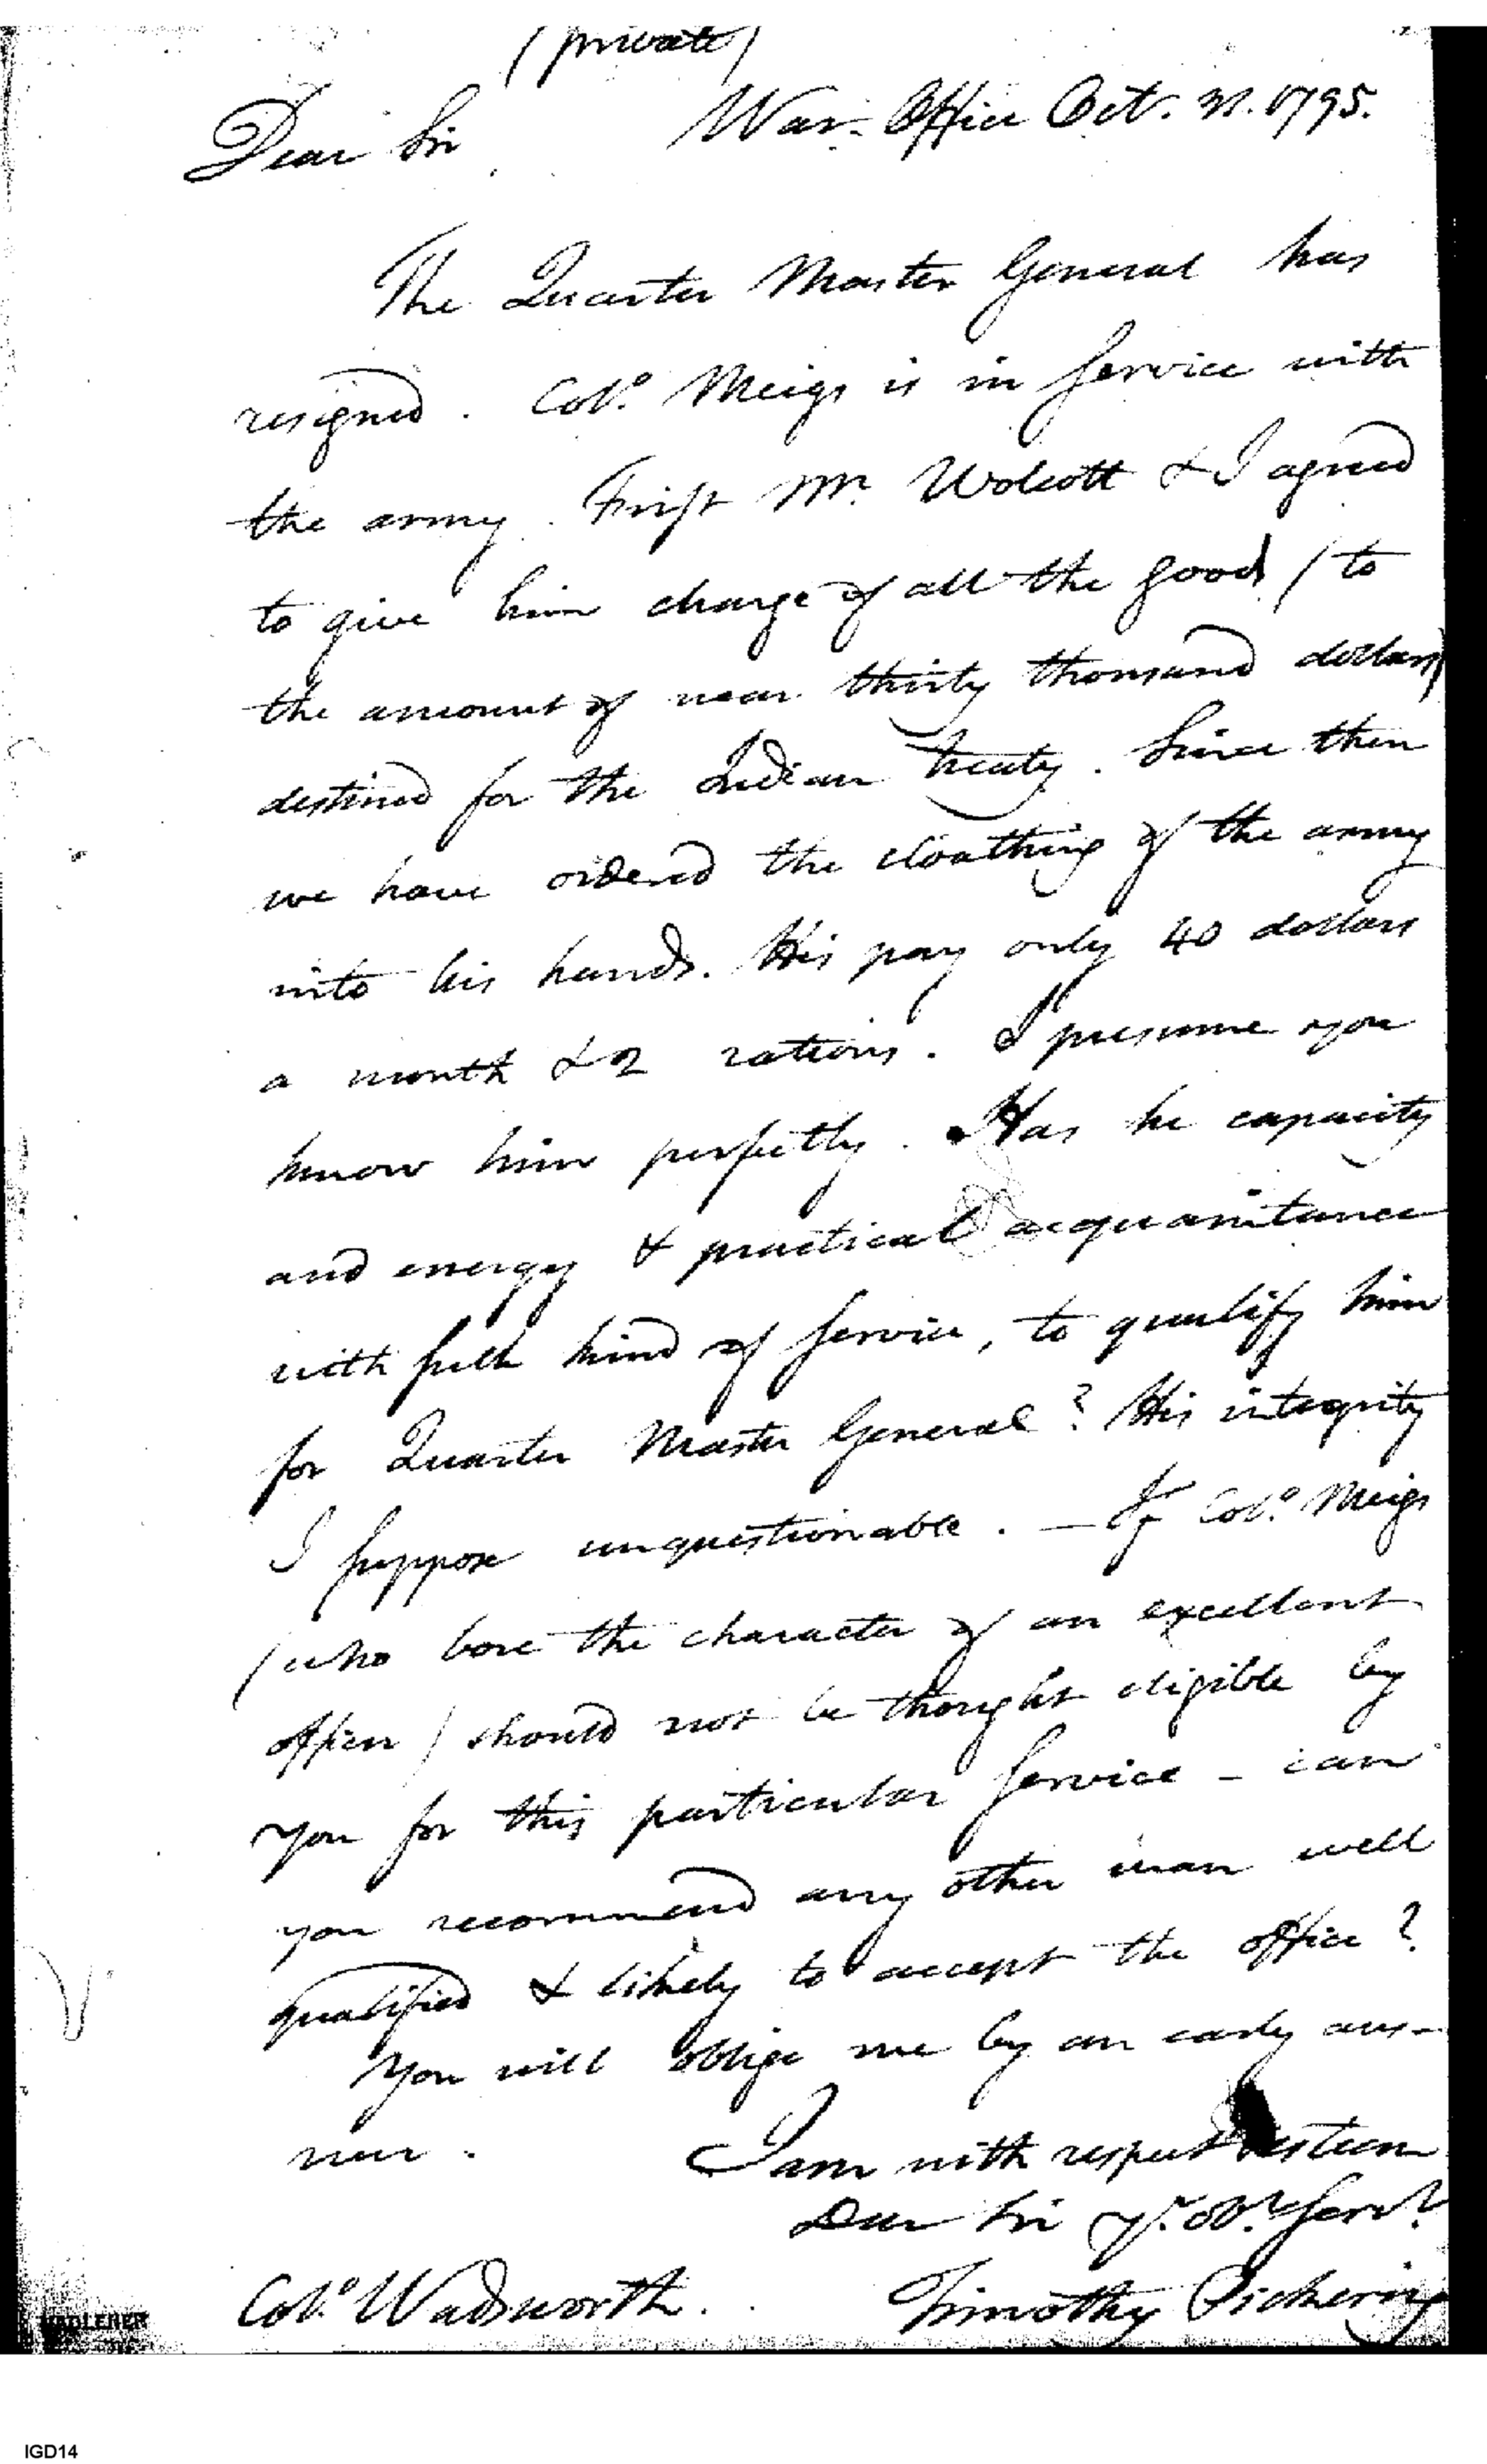 (private)
War-Office Oct. 31. 1795.
Dear Sir
The Quarter Master General has
resigned. Colo. Meigs is in service with
the army. First Mr. Wolcott & I agreed
to give him charge of all the goods (to
the amount of near thirty thousand dollars)
destined for the Indian treaty. Since then
we have ordered the cloathing of the army
into his hands. His pay only 40 dollars
a month & 2 rations. I presume you
know him perfectly. Has he capacity
and energy & practical acquaintance
with such kind of service, to qualify him
for Quarter Master General? His integrity
I suppose unquestionable. — If Colo. Meigs
(who bore the character of an excellent
officer) should not be thought eligible by
you for this particular service - can
you recommend any other man well
qualified & likely to accept the office?
You will oblige me by an early ans-
wer.
I am with respect & esteem
Dear Sir yr. obt. servt.
Colo. Wadsworth.
Timothy Pickering
IGD14